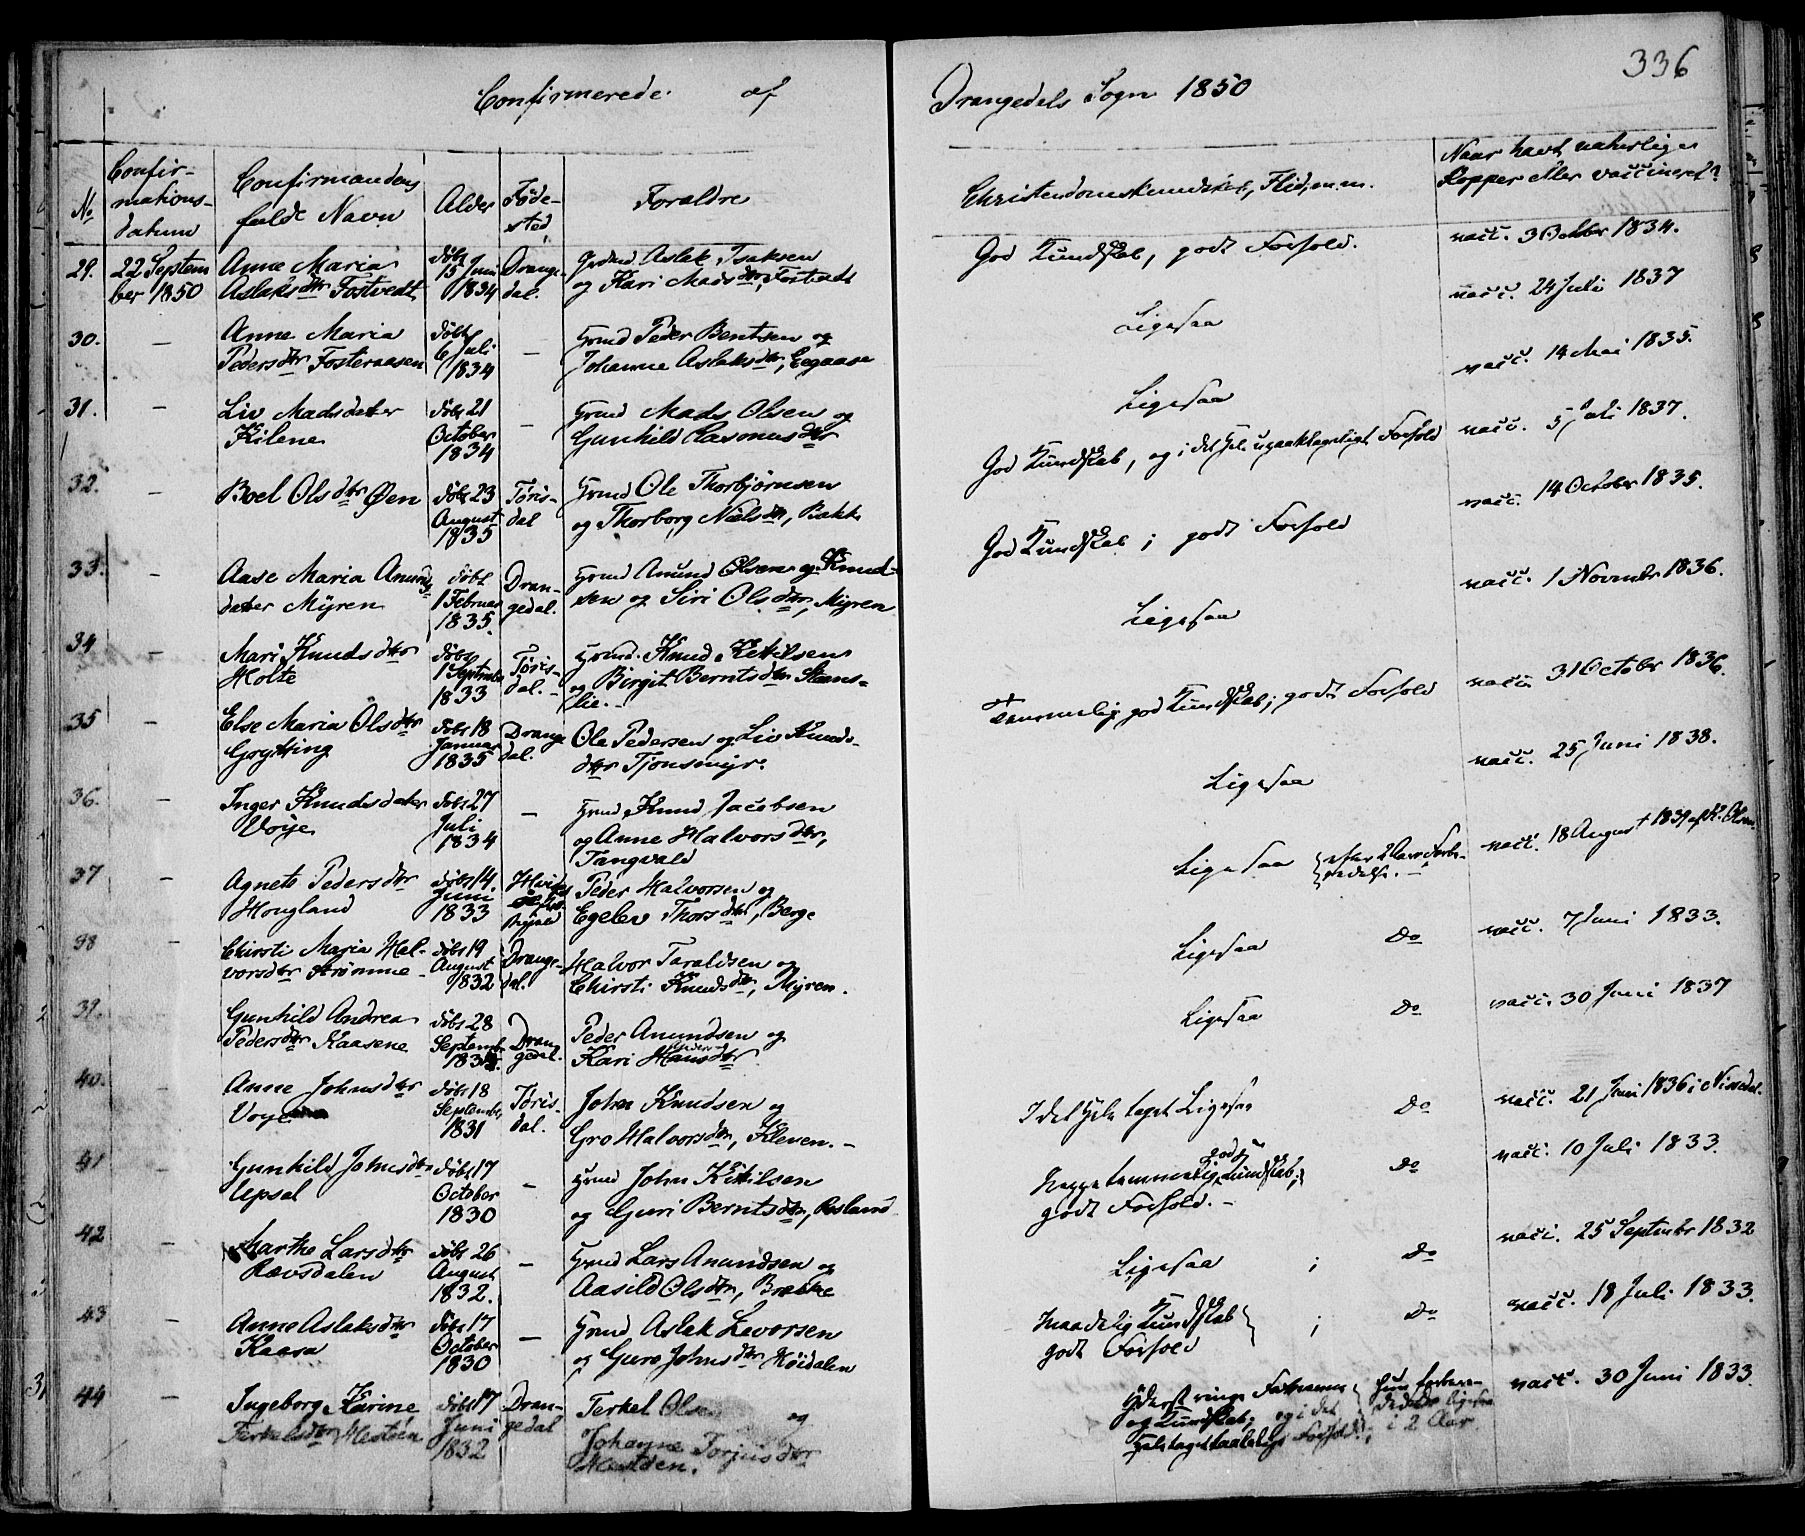 Confirmerede af Drangedals Sogn 1850
336
No
Confirmationsdatum
Confirmandens fulde Navn
Alder
Fødested
Forældre
Christendomskundskab, Flid, m.m.
Naar havt naturlige Kopper eller vaccineret?
29. 22 September 1850
Anne Maria
Aslaksdtr Fostvedt
døbt 15 Juni 1834
Drangedal.
Grmd Aslak Isaksen
og Kari Madsdtr, Fostvedt
God Kundskab, godt Forhold.
vacc. 3 October 1834.
30. —
Anne Maria
Pedersdtr Fosteraasen
døbt 6 Juli 1834
—
Grmd Peder Bentsen og
Johanne Aslaksdtr, Eegaase
Ligesaa
vacc. 24 Juli 1837
31. —
Liv Madsdatter
Kilene
døbt 21 October 1834
—
Grmd Mads Olsen og
Gunhild Rasmusdtr
Ligesaa
vacc. 14 Mai 1835.
32. —
Boel Olsdtr Øen
døbt 23 August 1835
Tørisdal
Grmd Ole Thorbjørnsen
og Thorborg Nielsdtr, Bakke
God Kundskab, og i det Hele upaaklageligt Forhold
vacc. 5 Juli 1837.
33. —
Aase Maria Anunds
datter Myren
døbt 1 Februar 1835.
Drangedal.
Grmd Anund Olsen og Knudsen
og Siri Olsdtr, Myren
God Kundskab; godt Forhold
vacc. 14 October 1835.
34 —
Mari Knudsdtr
Holte
døbt 1 September 1833
Tørisdal. -
Grmd. Knud Ketilsen
og Birgit Berntsdtr Stenslie. -
Ligesaa
vacc. 1 November 1836.
35 —
Else Maria Olsdtr
Grytting
døbt 18 Januar 1835
Drangedal.
Ole Pedersen og Liv Knudsdtr
Tjonsmyr.
+
Temmelig god Kundskab; godt Forhold
vacc. 31 October 1836.
36. —
Inger Knudsdatter
Voje
døbt 27 Juli 1834
—
Grmd Knud Jacobsen
og Anne Halvorsdtr,
Tangvald
Ligesaa
vacc. 25 Juni 1838.
37 —
Agnete Pedersdtr
Hougland
døbt 14 Juni 1833
Peder Halvorsen og
Egelev Thorsdtr, Berge
Ligesaa
efter 2 Aars Forberedelse. -
vacc. 18 August 1839 af K. Olsen
38 —
Chirsti Maria Halvorsdtr
Strømme
døbt 19 August 1832
Drangedal.
Halvor Taraldsen og
Chirsti Knudsdtr, Myren.
Ligesaa
Do
vacc. 7 Juni 1833.
39.
Gunhild Andrea
Pedersdtr Kaasene
døbt 28 September
Drangedal.
Peder Anundsen og
Kari Hansdtr
Ligesaa
Do
vacc. 30 Juni 1837
40.
Anne Johnsdtr
Voje
døbt 18 September 1831
Tørisdal.
John Knudsen og
Gro Halvorsdtr, Kleven. -
I det Hele taget Ligesaa
Do
vacc. 21 Juni 1836 i Nissedal.
41 —
Gunhild Johnsdtr
Upsal
døbt 17 October 1830
—
Grmd John Kittilsen
og Guri Berntsdtr,
Neppe temmelig god Kundskab;
godt Forhold. -
Do
vacc. 10 Juli 1833.
42 —
Marthe Larsdtr
Rævsdalen
døbt 26 August 1832.
—
Grmd Lars Anundsen og
Aasild Olsdtr, Brække
Ligesaa ;
Do
vacc. 25 September 1832
43 —
Anne Aslaksdtr
Kaasa
døbt 17 October 1830
—
Grmd Aslak Levorsen
og Guro Johnsdtr Høidalen
Maadelig Kundskab
godt Forhold ;
Do
vacc. 18 Juli 1833.
44 —
Ingeborg Karine
Terkelsdtr Mostøen
døbt 17 Juni 1832
Drangedal
Terkel Olsen og
Johanne Torjusdtr
Yderst ringe
og Kundskab; og i det
Heletaget taaleligt Forhold;
i 2 Aar.
vacc. 30 Juni 1833